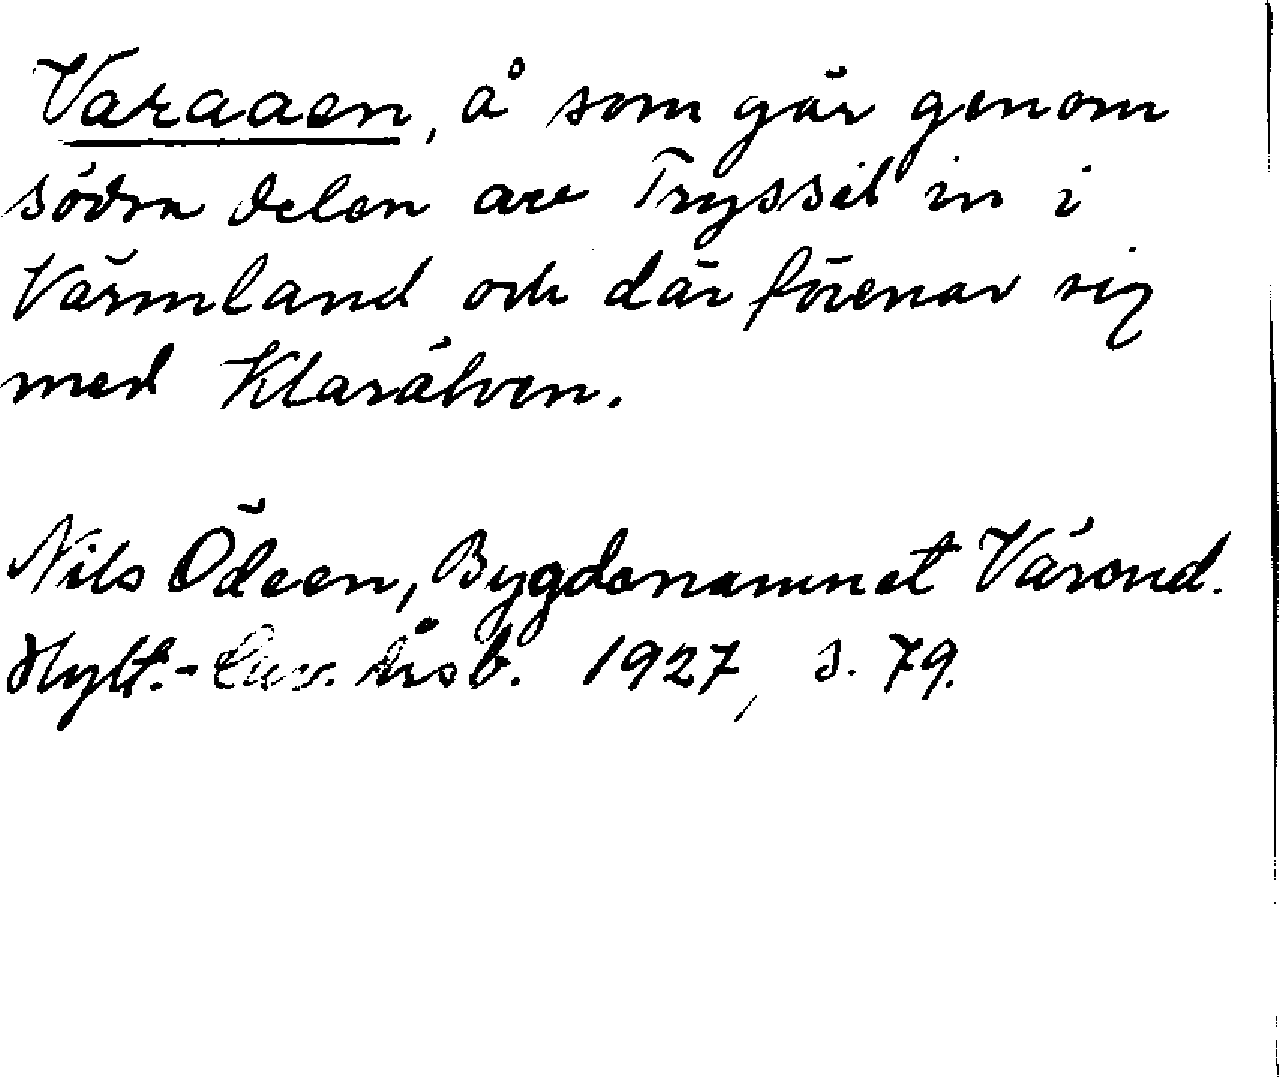 Varaaen, å som går genom
södra delen av Tryssil in i
Värmland och där förenar sig
med Klarälven.
Nils Ödeen, Bygdenamnet Värend.
Hylt.-Cav. årsb. 1927, s. 79.